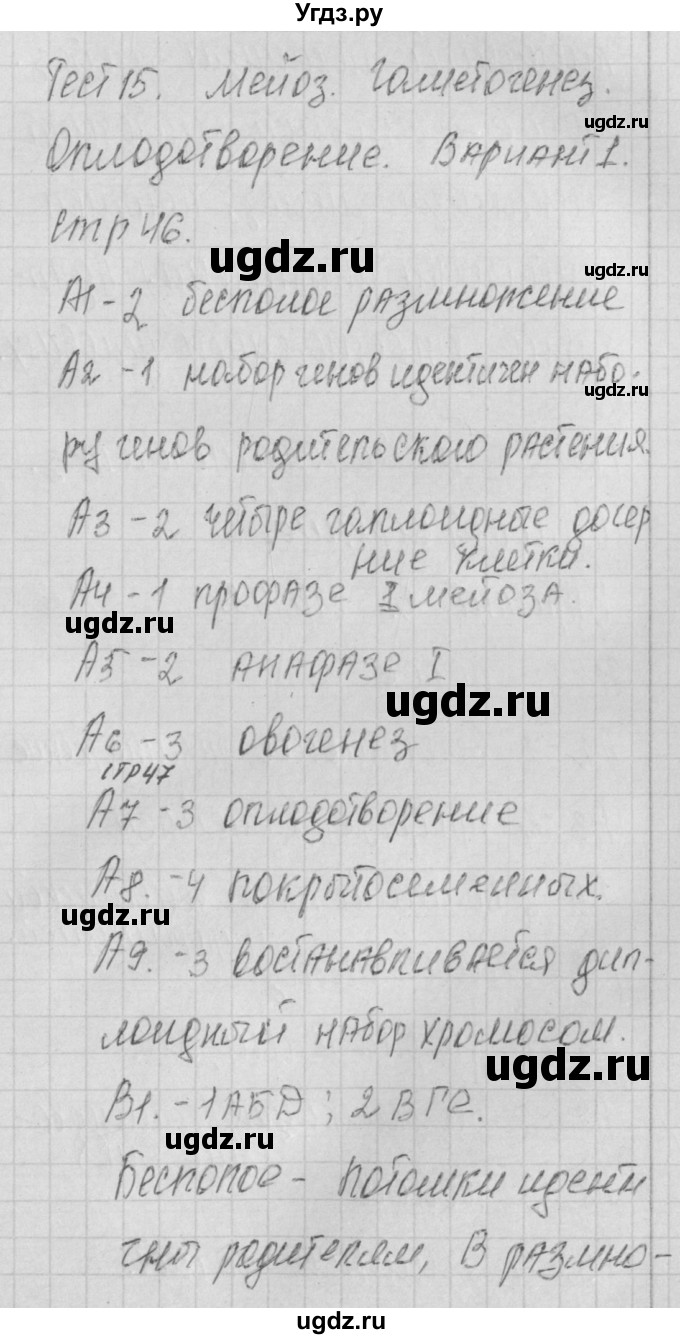 Угдз.ру
Тест 15. Мейоз. Гаметогенез.
ugdz.ru
Оплодотворение. Вариант 1.
ugdz.ru
стр 46.
ugdz.ru
ugdz.ru
А1 - 2 бесполое размножение
А2 - 1 набор генов идентичен набо-
ugdz.ru
ру генов родительского растения.
А3 - 2 четыре гаплоидные дочер
ние клетки.
А4 - 1 профазе I мейоза.
ugdz.ru
А5 - 2 анафазе I
ugdz.ru
А6 - 3 овогенез
стр 47
А7 - 3 оплодотворение
А8. - 4 покрытосеменных.
ugdz.ru
А9. - 3 востанавливается дип-
лоидный набор хромосом.
ugdz.ru
В1. - 1 А Б Д ; 2 В Г Е.
ugdz.ru
Бесполое - потомки иденти
чны родителям, В размно-
ugdz.ru